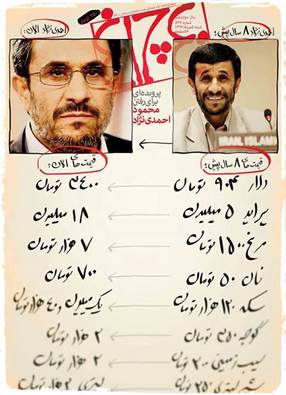 احمدی نژاد ۸ سال پیش:
احمدی نژاد الان:
چراغ
پرونده‌ای
برای رفتن
محمود
احمدی‌نژاد
قیمت ها ۸ سال پیش:
قیمت های الان:
دلار ۹۰۴ تومان
۳۴۰۰ تومان
پراید ۵ میلیون
۱۸ میلیون
مرغ ۱۵۰۰ تومان
۷ هزار تومان
نان ۵۰ تومان
۷۰۰ تومان
سکه ۱۲۰ هزار تومان
یک میلیون و ۴۰۰ هزار تومان
گوجه ۲۵۰ تومان
۲ هزار تومان
سیب زمینی ۲۰۰ تومان
۲ هزار تومان